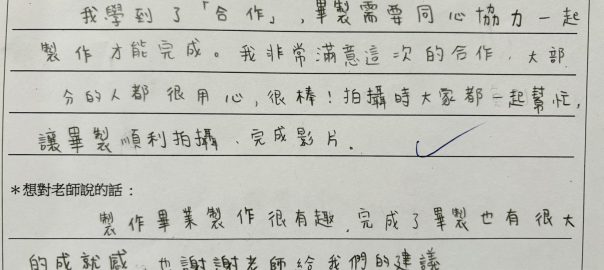 我學到了「合作」，畢製需要同心協力一起
製作才能完成。我非常滿意這次的合作，大部
分的人都很用心，很棒！拍攝時大家都一起幫忙，
讓畢製順利拍攝、完成影片。
*想對老師說的話：
製作畢業製作很有趣，完成了畢製也有很大
的成就感，也謝謝老師給我們的建議